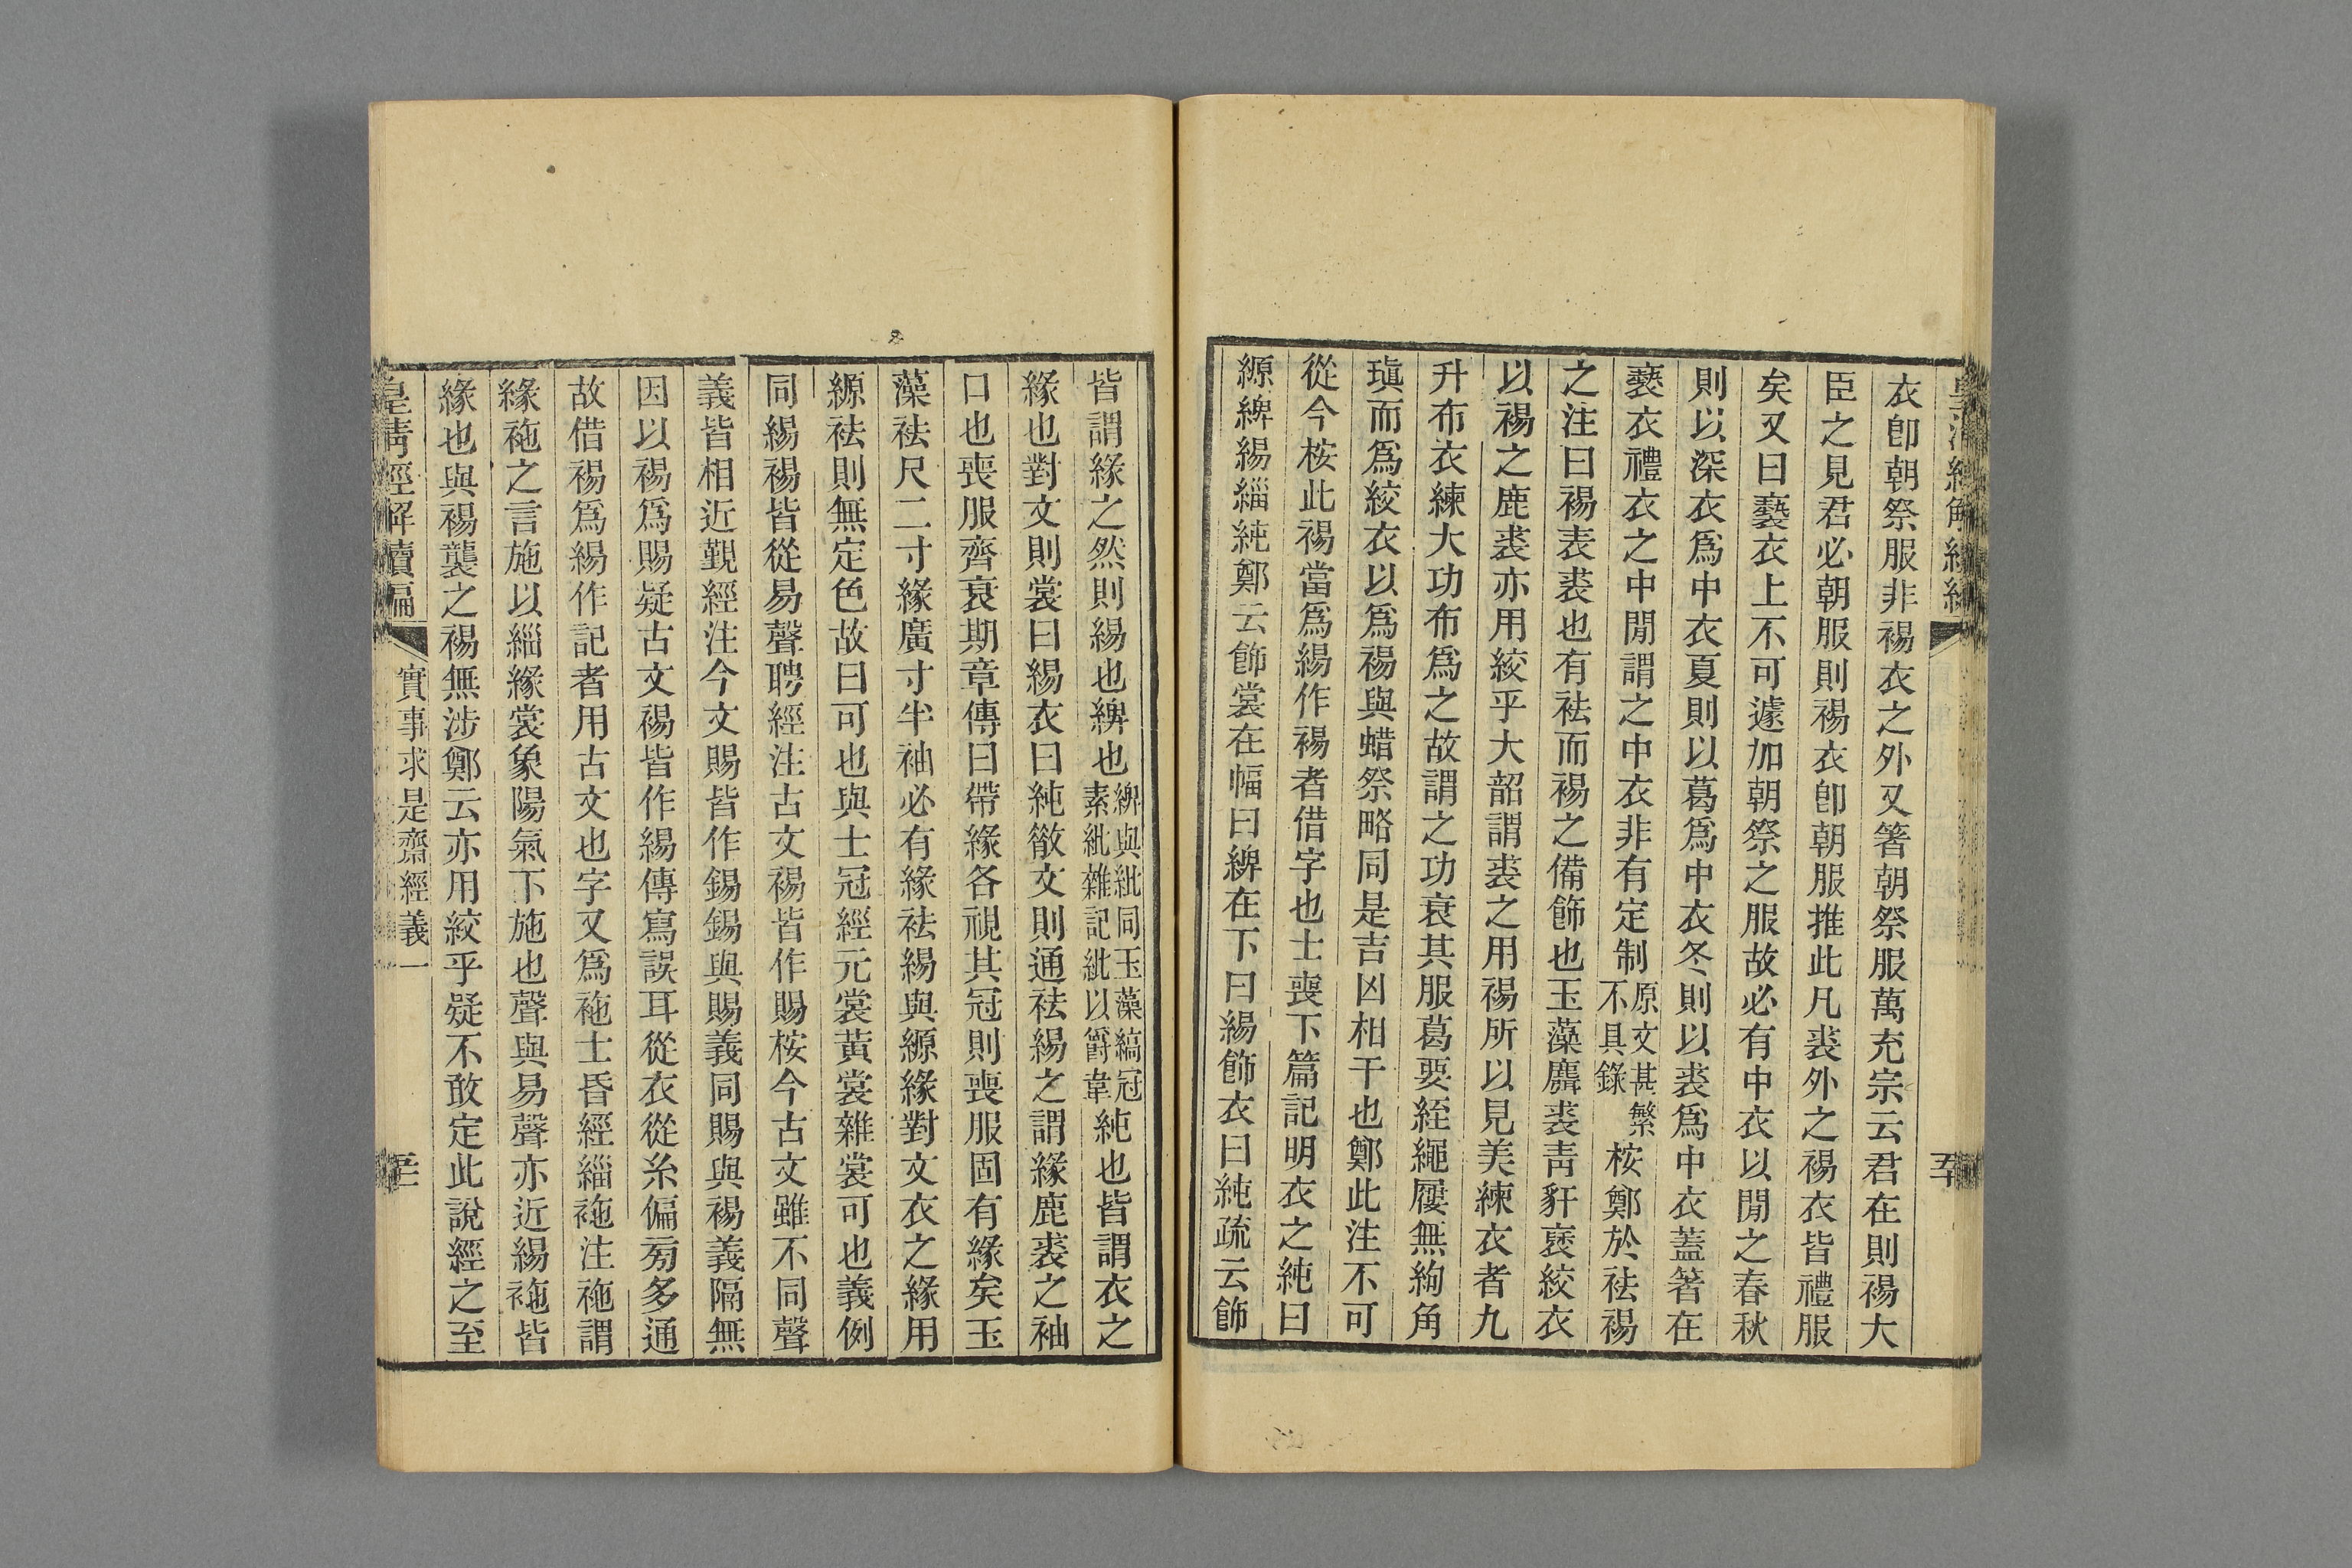 衣卽朝祭服非裼衣之外又箸朝祭服萬充宗云君在則裼大
臣之見君必朝服則裼衣卽朝服推此凡裘外之裼衣皆禮服
矣又曰褻衣上不可遽加朝祭之服故必有中衣以閒之春秋
則以深衣爲中衣夏則以葛爲中衣冬則以裘爲中衣蓋箸在
褻衣禮衣之中閒謂之中衣非有定制原文甚繁不具錄桉鄭於袪裼
之注曰裼表裘也有袪而裼之備飾也玉藻麛裘靑豻褎絞衣
以裼之鹿裘亦用絞乎大韶謂裘之用裼所以見美練衣者九
升布衣練大功布爲之故謂之功衰其服葛要絰繩屨無絇角
瑱而爲絞衣以爲裼與蜡祭略同是吉凶相干也鄭此注不可
從今桉此裼當爲緆作裼者借字也士喪下篇記明衣之純曰
縓綼緆緇純鄭云飾裳在幅曰綼在下曰緆飾衣曰純疏云飾
五十
皆謂緣之然則緆也綼也綼與紕同玉藻縞冠素紕雜記紕以爵韋純也皆謂衣之
緣也對文則裳曰緆衣曰純散文則通袪緆之謂緣鹿裘之袖
口也喪服齊衰期章傳曰帶緣各視其冠則喪服固有緣矣玉
藻袪尺二寸緣廣寸半袖必有緣袪緆與縓緣對文衣之緣用
縓袪則無定色故曰可也與士冠經元裳黃裳雜裳可也義例
同緆裼皆從易聲聘經注古文裼皆作賜桉今古文雖不同聲
義皆相近觐經注今文賜皆作錫錫與賜義同賜與裼義隔無
因以裼爲賜疑古文裼皆作緆傳寫誤耳從衣從糸偏旁多通
故借裼爲緆作記者用古文也字又爲袘士昏經緇袘注袘謂
緣袘之言施以緇緣裳象陽氣下施也聲與易聲亦近緆袘皆
緣也與裼襲之裼無涉鄭云亦用絞乎疑不敢定此說經之至
皇淸經解續編 實事求是齋經義一